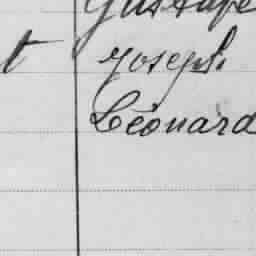 Gustave
t Joseph
Léonard